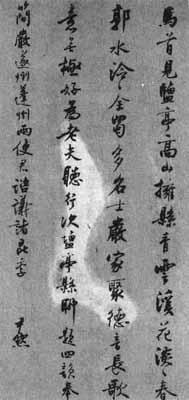 馬首見鹽亭高山擁縣青雲溪花淡〻春
郭水泠〻全蜀多名士嚴家聚德星長歌
意無極好為老夫聽行次鹽亭縣聊題四韻奉
簡嚴遂州蓬州兩使君諮議諸昆季
尹默